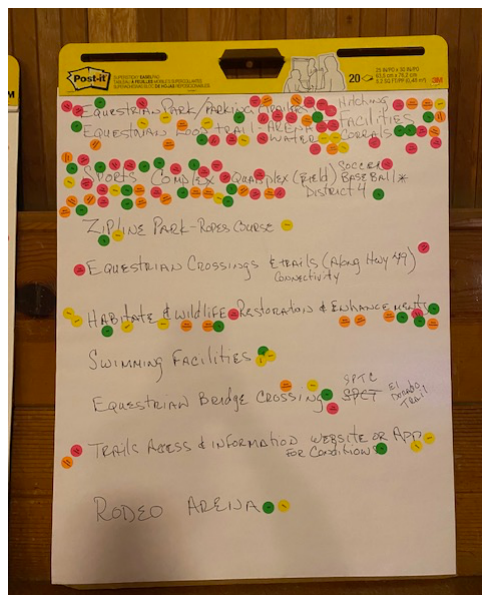 Post-it
SUPER STICKY EASEL PAD
20
25 IN/PO x 30 IN/PO
63,5 cm x 76,2 cm
3M
M
Equestrian Park/Parking/Trailer Hitching
Equestrian Food Trail - Arena Facilities
Water Corrals
Sports Complex Quadplex (Field) Soccer
Baseball *
District 4
Zipline Park - Ropes Course
Equestrian Crossings & trails (Along Hwy 49)
Connectivity
Habitate & Wildlife Restoration & Enhancements
Swimming Facilities
Equestrian Bridge Crossing SPTC El
SPCT Dorado
Trail
Trails Access & Information website or App
For Conditions
Rodeo Arena